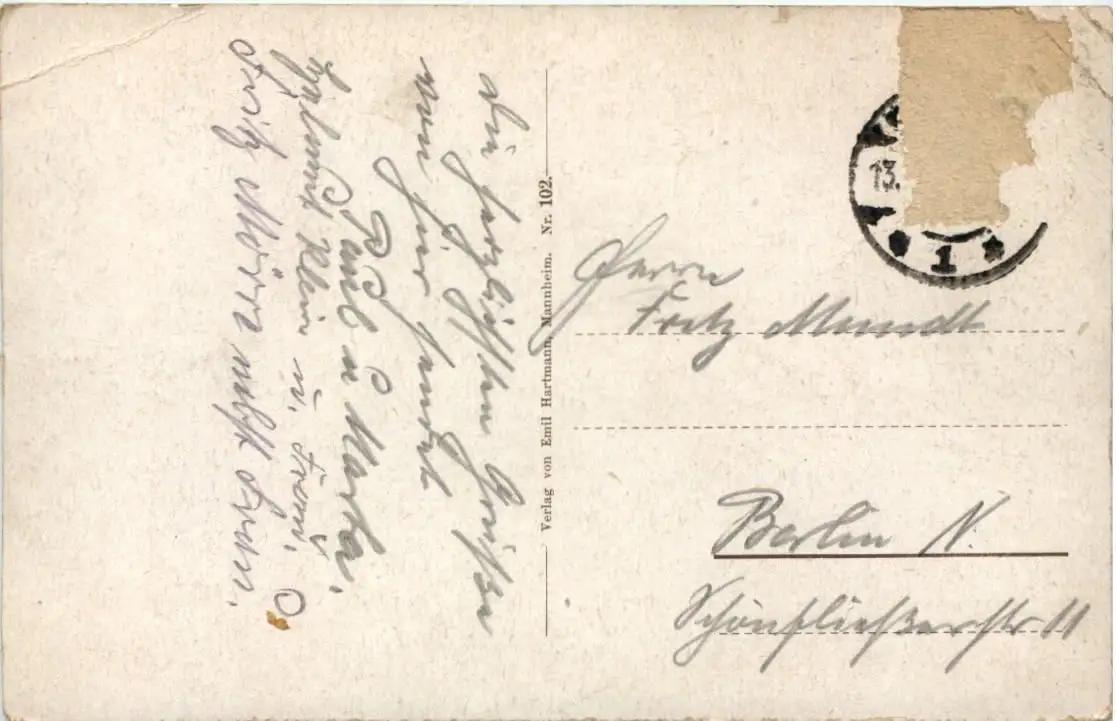 Die herzlichsten Grüße
von hier sendet
Paul u Martha.
Helmut Klein u. Frau,
Fritz nebst Frau.
Verlag von Emil Hartmann, Mannheim. Nr. 102.
13.
* 1 *
Herrn
Fritz Mundt
Berlin N.
Schönfließerstr 11